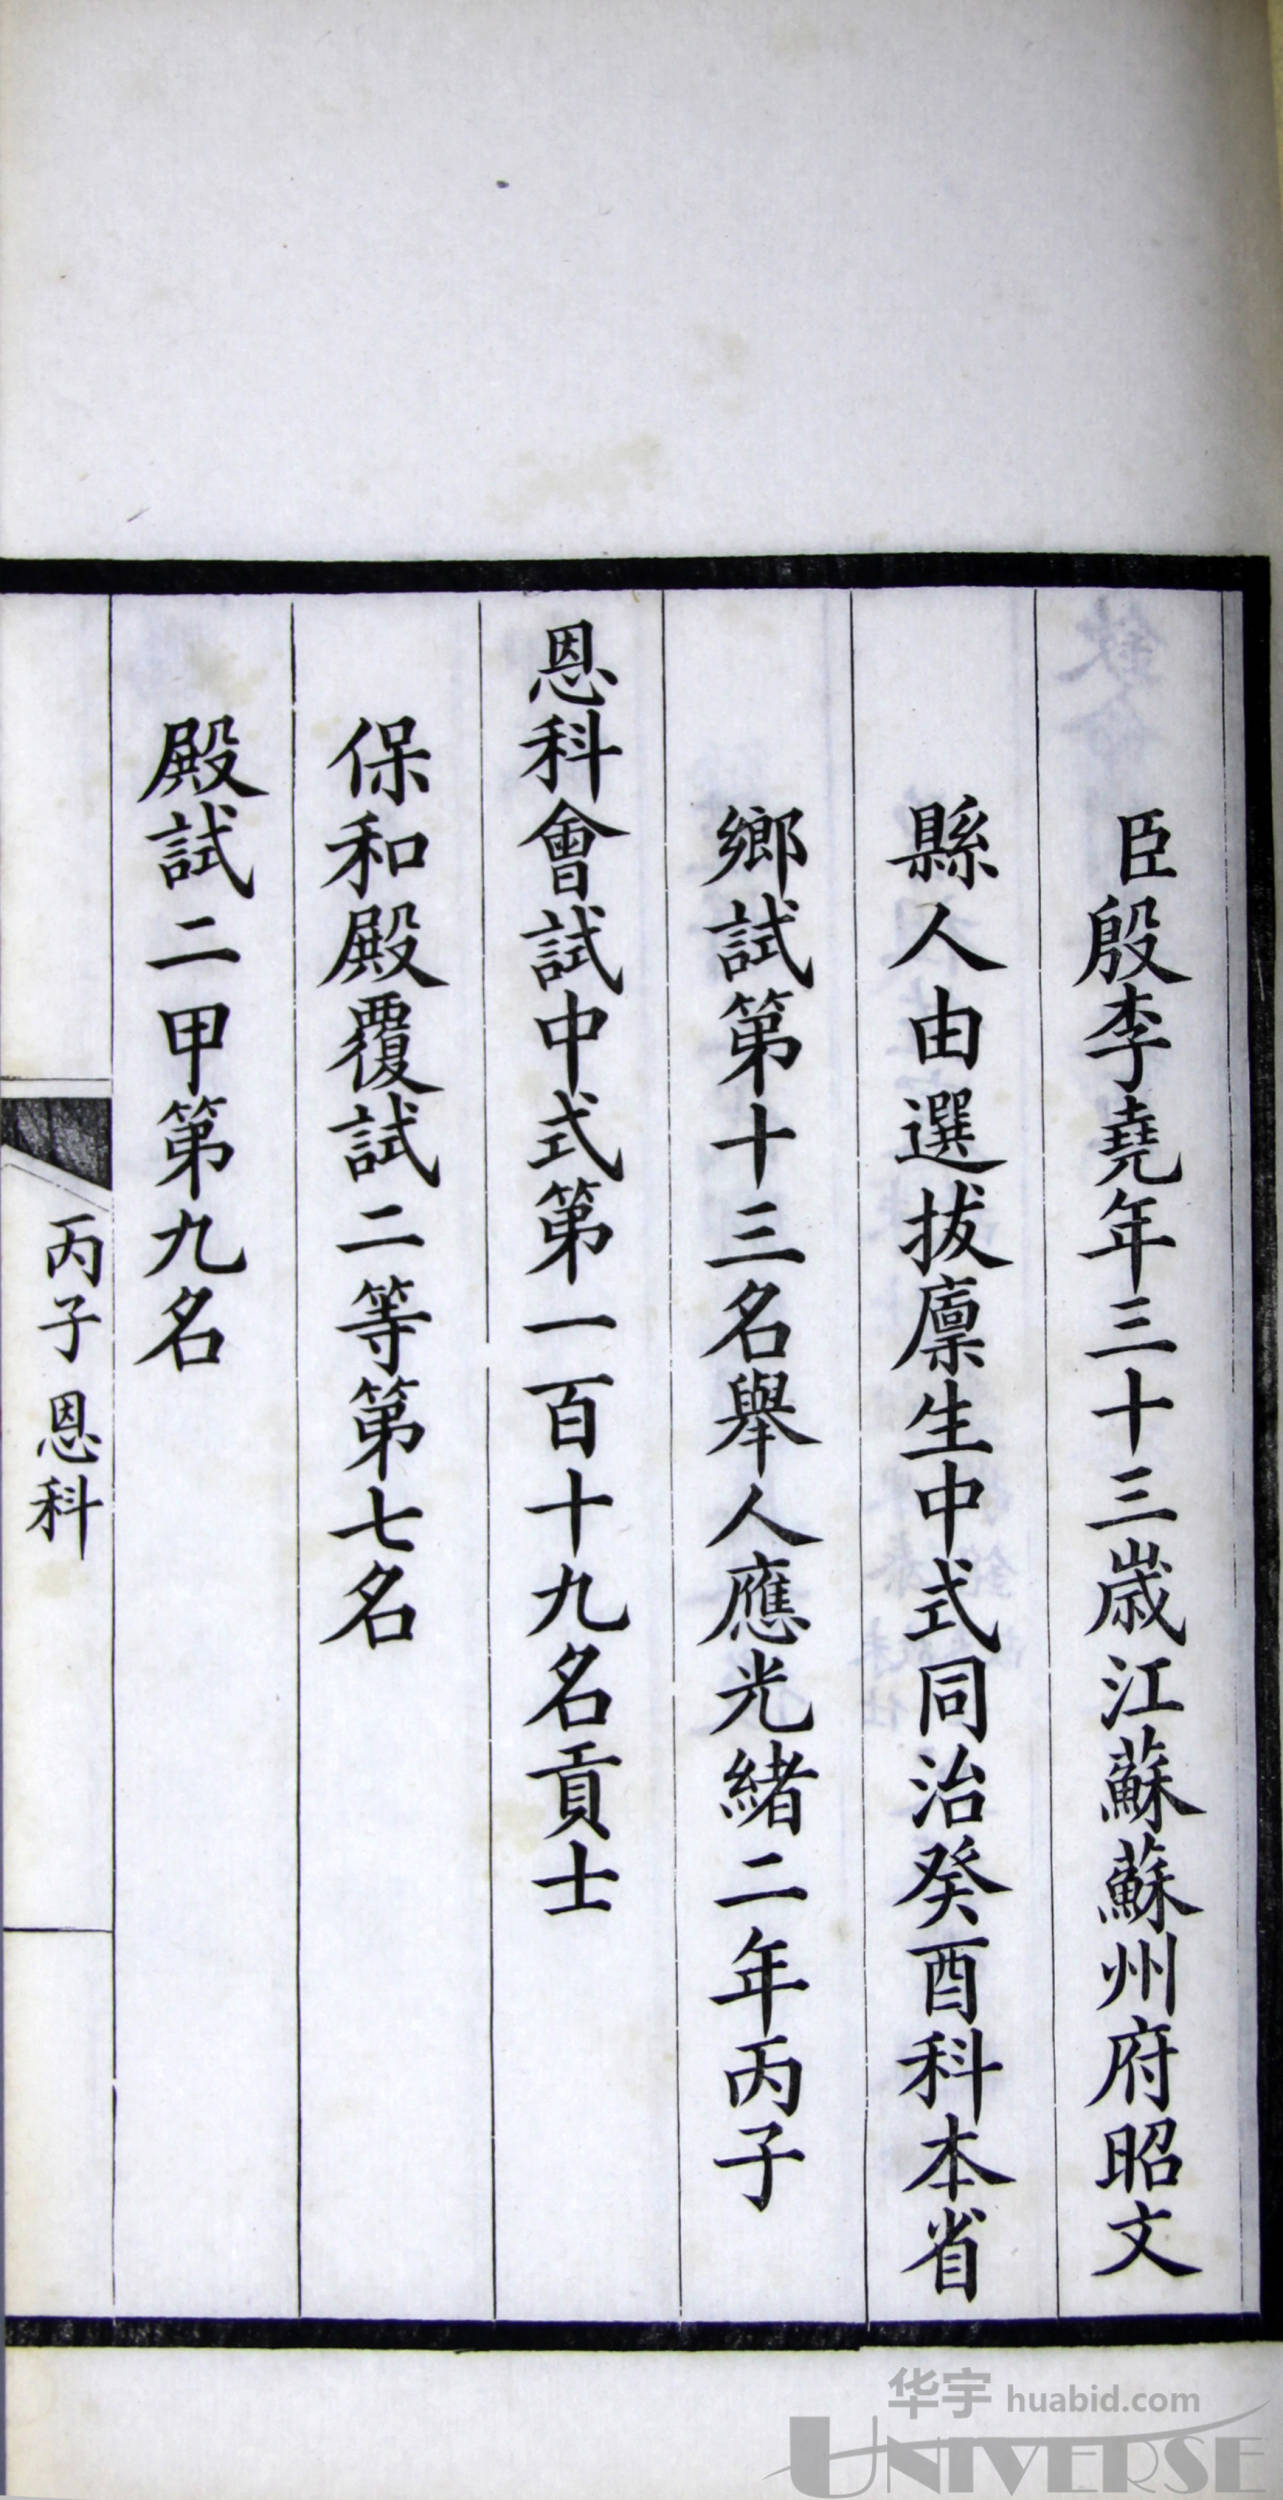 臣殷李堯年三十三歲江蘇蘇州府昭文
縣人由選拔廪生中式同治癸酉科本省
鄉試第十三名舉人應光緒二年丙子
恩科會試中式第一百十九名貢士
保和殿覆試二等第七名
殿試二甲第九名
丙子恩科
华宇 huabid.com
UNIVERSE